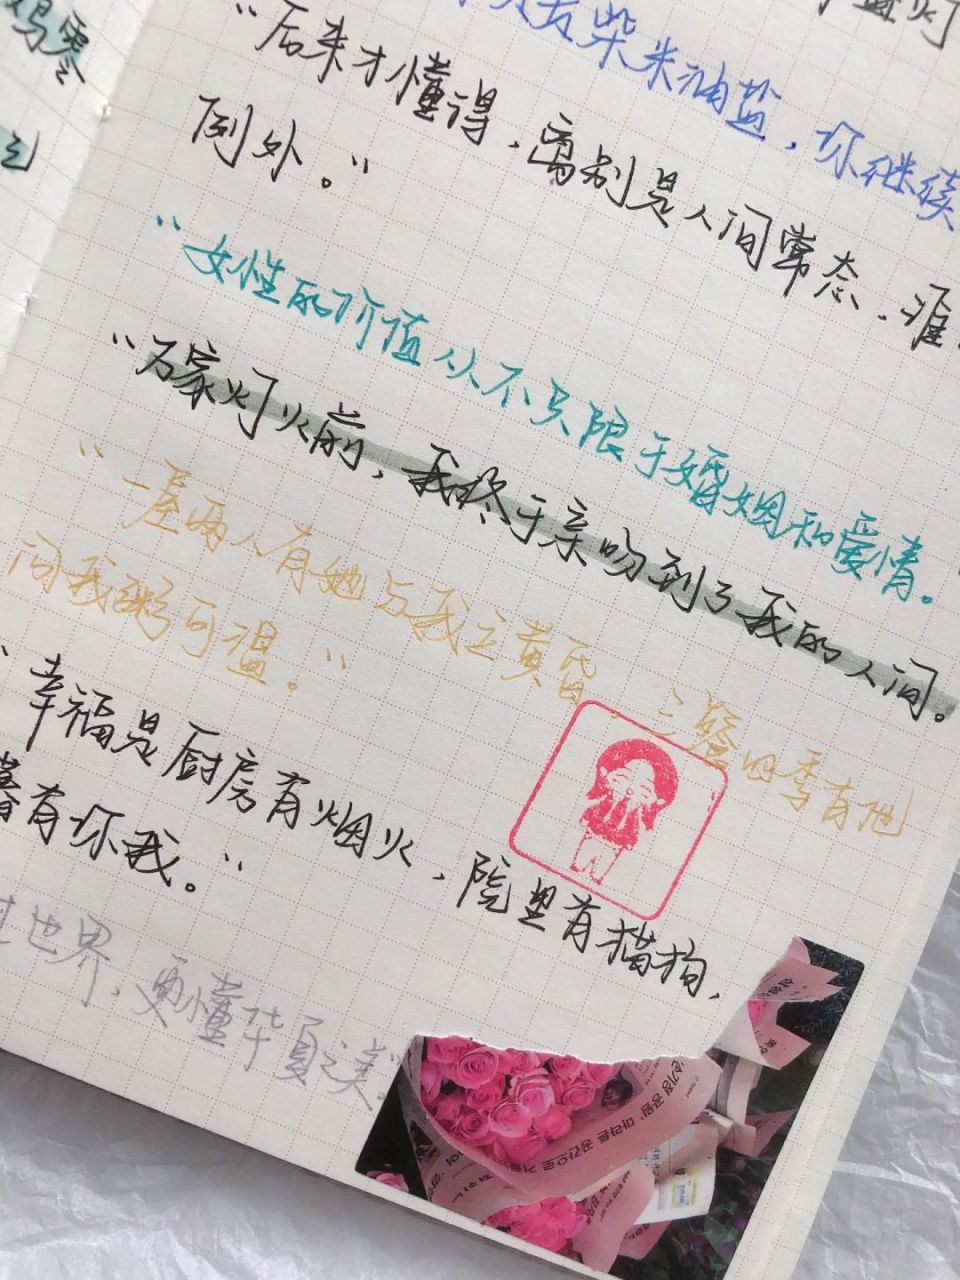 柴米油盐，你继续
"后来才懂得，离别是人间常态，
例外。"
"女性的价值从不只限于婚姻和爱情。
"万家灯火前，我终于亲吻到了我的人间。
"一屋两人有她与我立黄昏，三餐四季有他
问我粥可温。"
"幸福是厨房有烟火，院里有猫狗，
暮有你我。"
过世界，更懂华夏之美